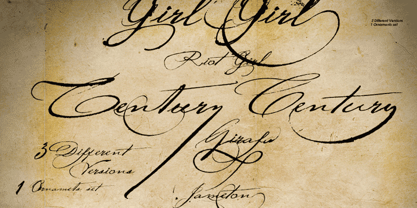 Girl Girl
3 Different Versions
1 Ornaments set
Riot Girl
Century Century
Girafe
3 Different
Versions
1 Ornamets set
Jameton